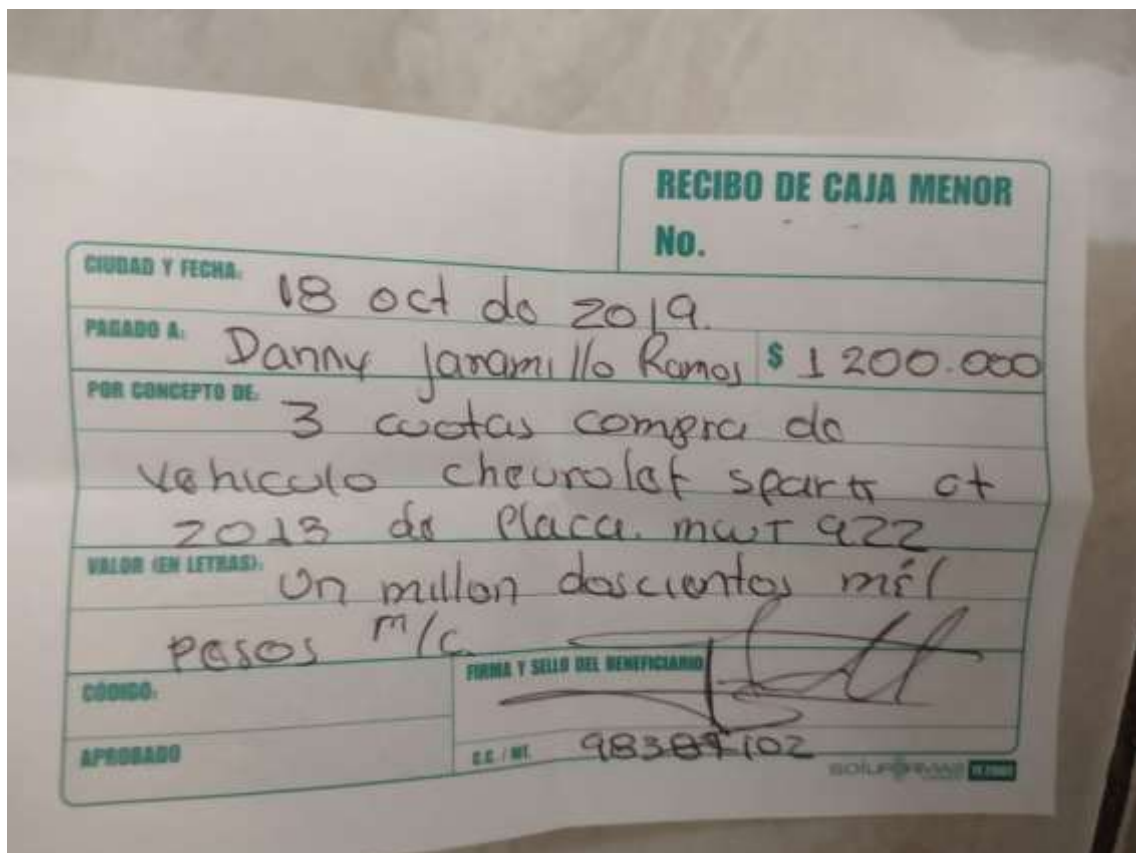 RECIBO DE CAJA MENOR
No.
CIUDAD Y FECHA: 18 oct de 2019.
PAGADO A: Danny Jaramillo Ramos $ 1 200.000
POR CONCEPTO DE: 3 cuotas compra de
vehiculo chevrolet spark gt
2013 de placa. mwt 922
VALOR (EN LETRAS): Un millon doscientos mil
pesos m/c
CÓDIGO: FIRMA Y SELLO DEL BENEFICIARIO
APROBADO C.C. / NIT. 98387102